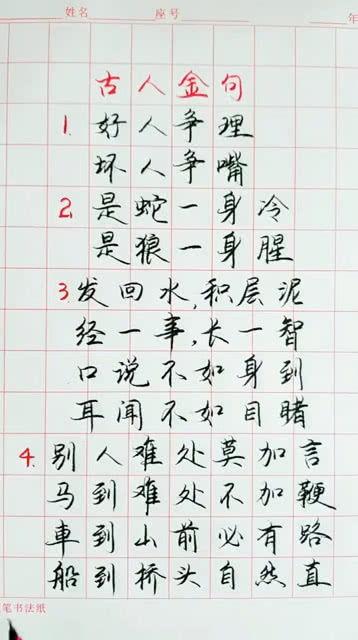 姓名 座号 年
古人金句
1. 好人争理
坏人争嘴
2. 是蛇一身冷
是狼一身腥
3. 发回水,积层泥
经一事,长一智
口说不如身到
耳闻不如目睹
4. 别人难处莫加言
马到难处不加鞭
車到山前必有路
船到桥头自然直
笔书法纸